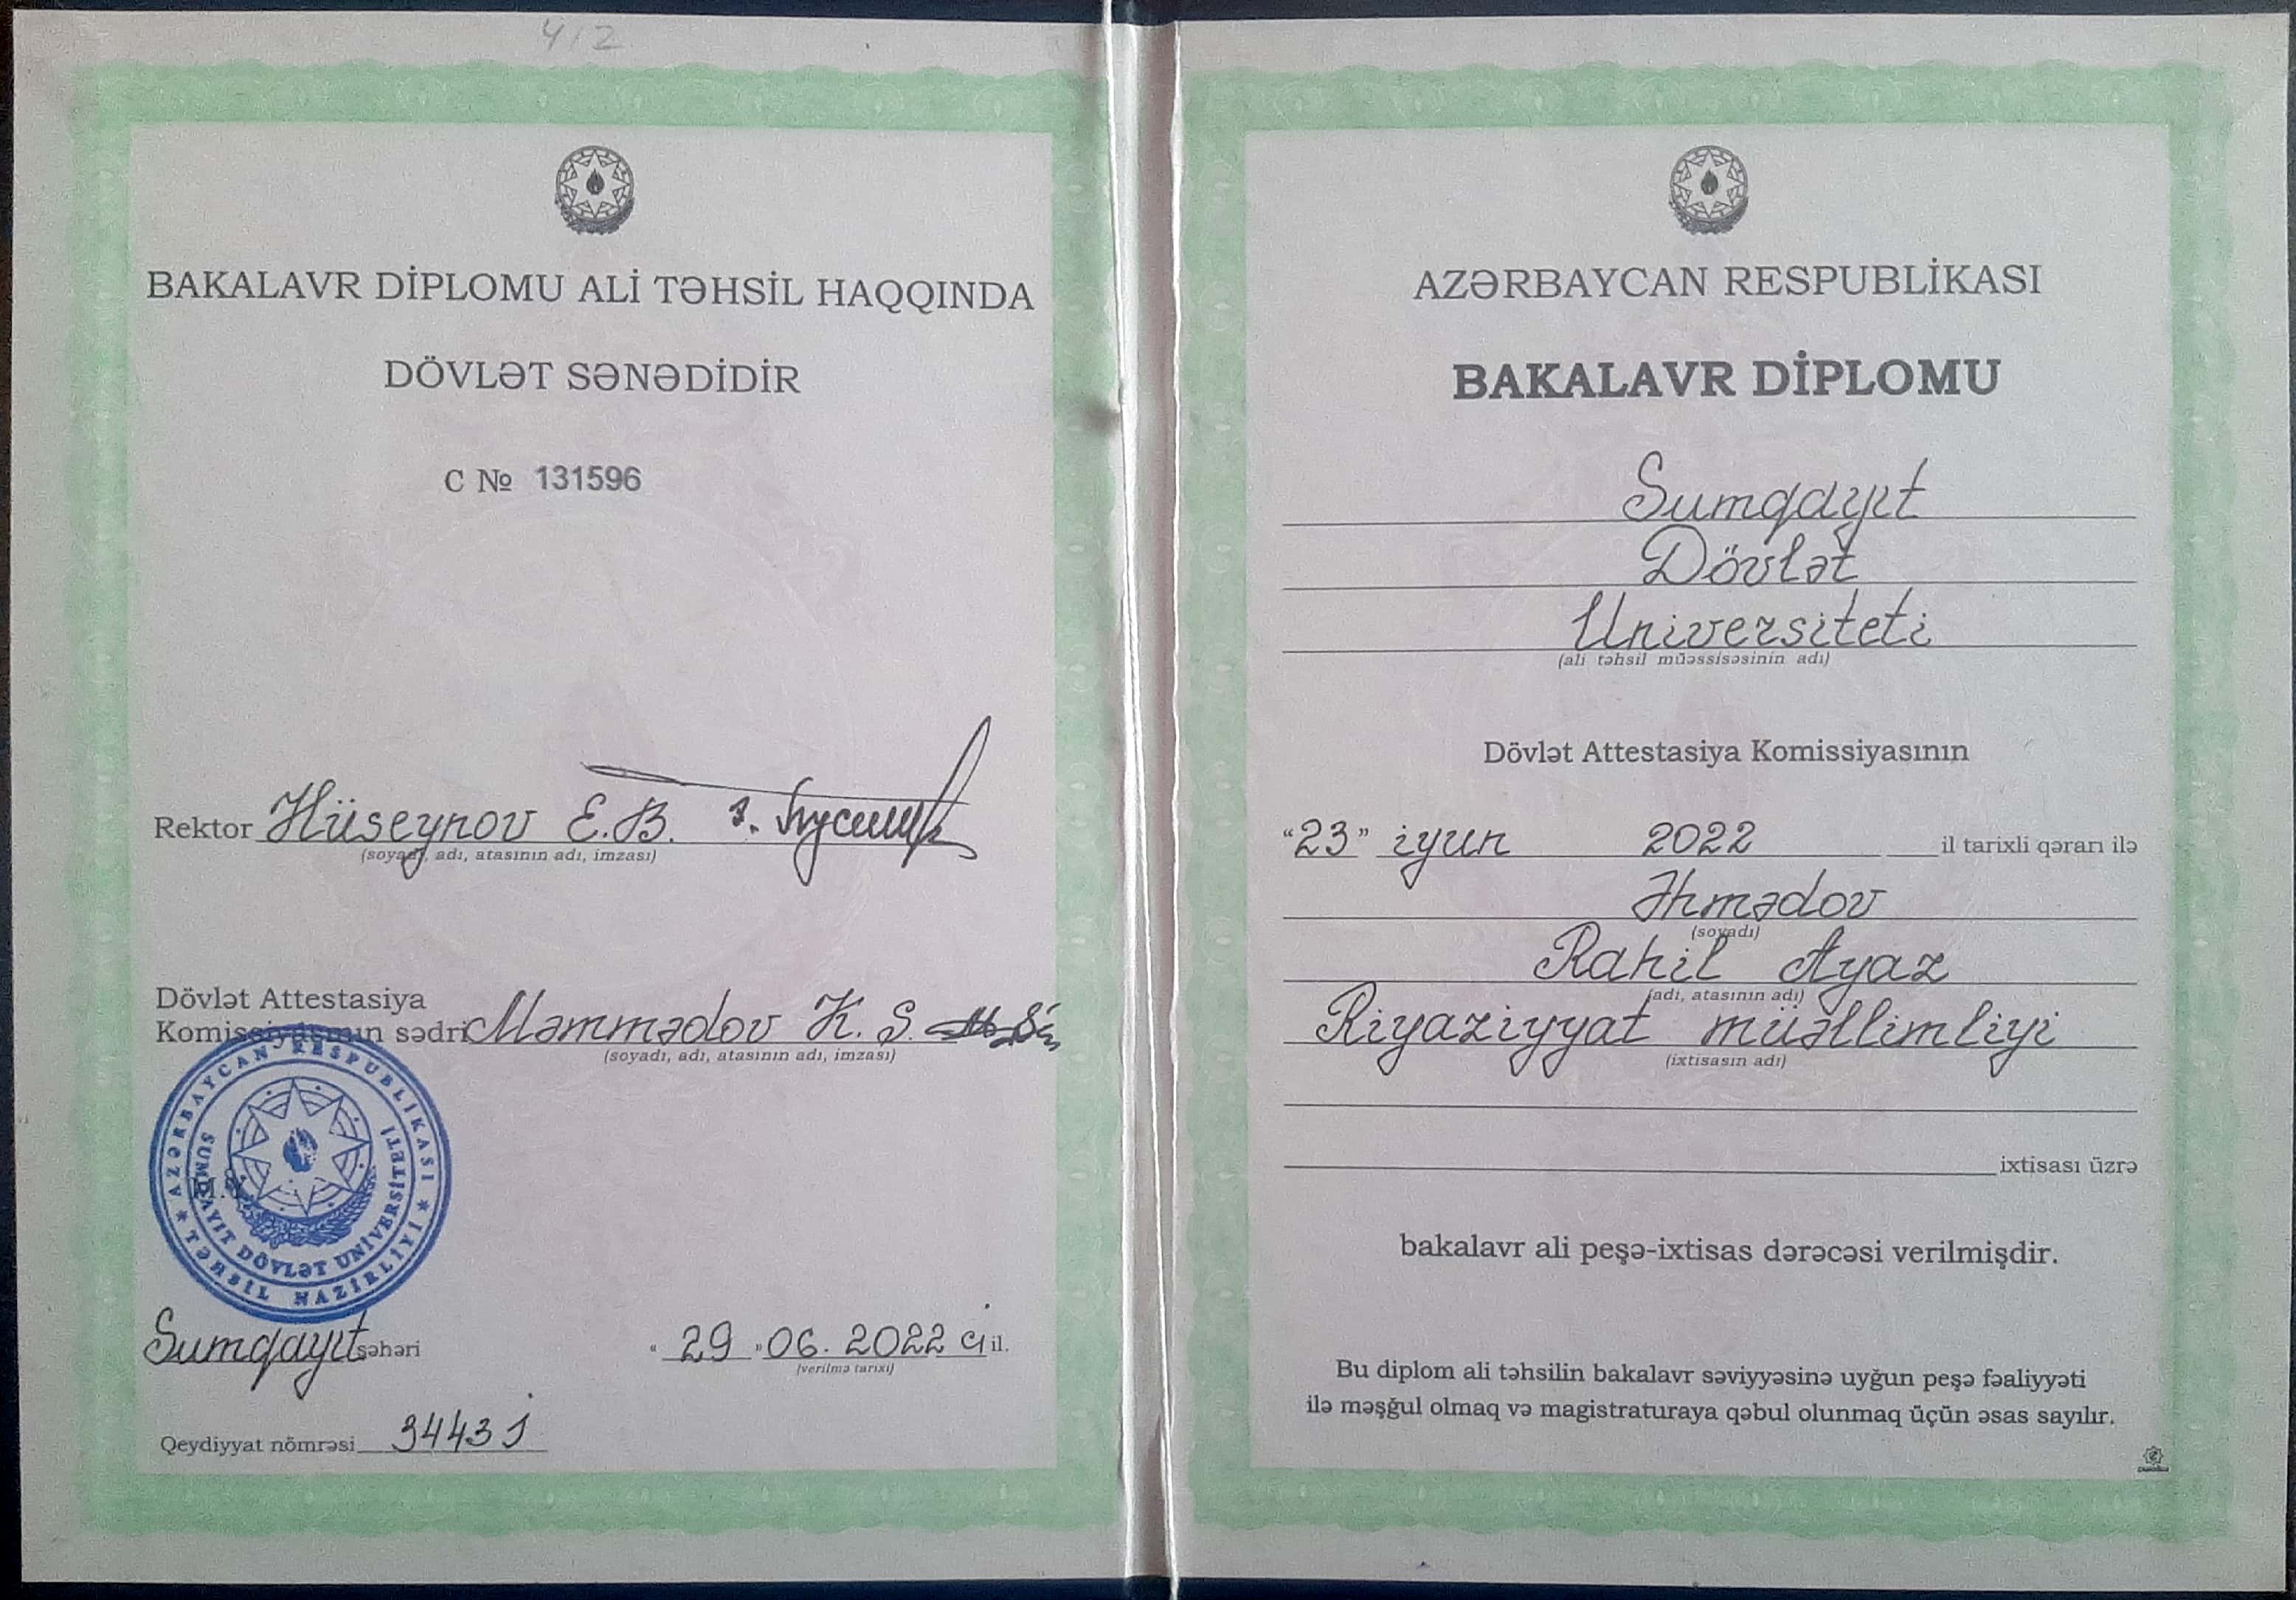 412
BAKALAVR DİPLOMU ALİ TƏHSİL HAQQINDA
DÖVLƏT SƏNƏDİDİR
C № 131596
Rektor Hüseynov E.B.
(soyadı, adı, atasının adı, imzası)
Dövlət Attestasiya
Komissiyasının sədri Məmmədov K. S.
(soyadı, adı, atasının adı, imzası)
AZƏRBAYCAN RESPUBLİKASI
TƏHSİL NAZİRLİYİ
SUMQAYIT DÖVLƏT UNİVERSİTETİ
Sumqayıt şəhəri
"29" 06. 2022 ci il.
(verilmə tarixi)
Qeydiyyat nömrəsi
AZƏRBAYCAN RESPUBLİKASI
BAKALAVR DİPLOMU
Sumqayıt
Dövlət
Universiteti
(ali təhsil müəssisəsinin adı)
Dövlət Attestasiya Komissiyasının
"23" iyun 2022 il tarixli qərarı ilə
Əhmədov
(soyadı)
Rahil Ayaz
(adı, atasının adı)
Riyaziyyat müəllimliyi
(ixtisasın adı)
ixtisası üzrə
bakalavr ali peşə-ixtisas dərəcəsi verilmişdir.
Bu diplom ali təhsilin bakalavr səviyyəsinə uyğun peşə fəaliyyəti
ilə məşğul olmaq və magistraturaya qəbul olunmaq üçün əsas sayılır.